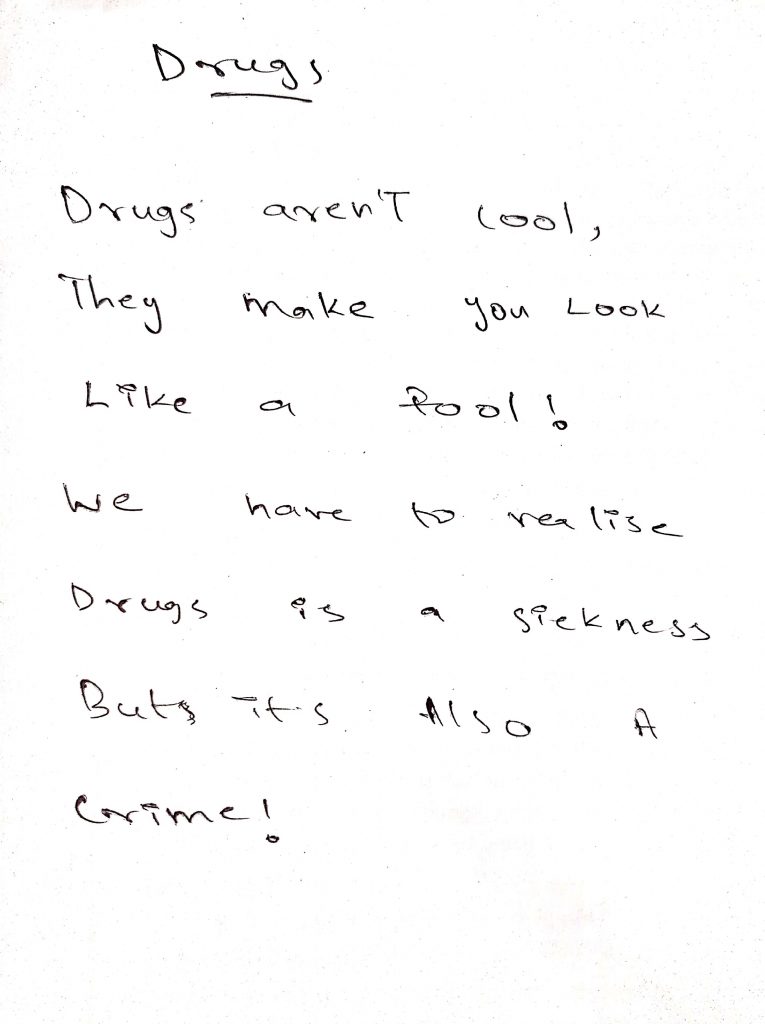 Drugs
Drugs aren'T cool,
They make you Look
Like a fool!
We have to realise
Drugs is a sickness
Buts it's Also A
Crime!